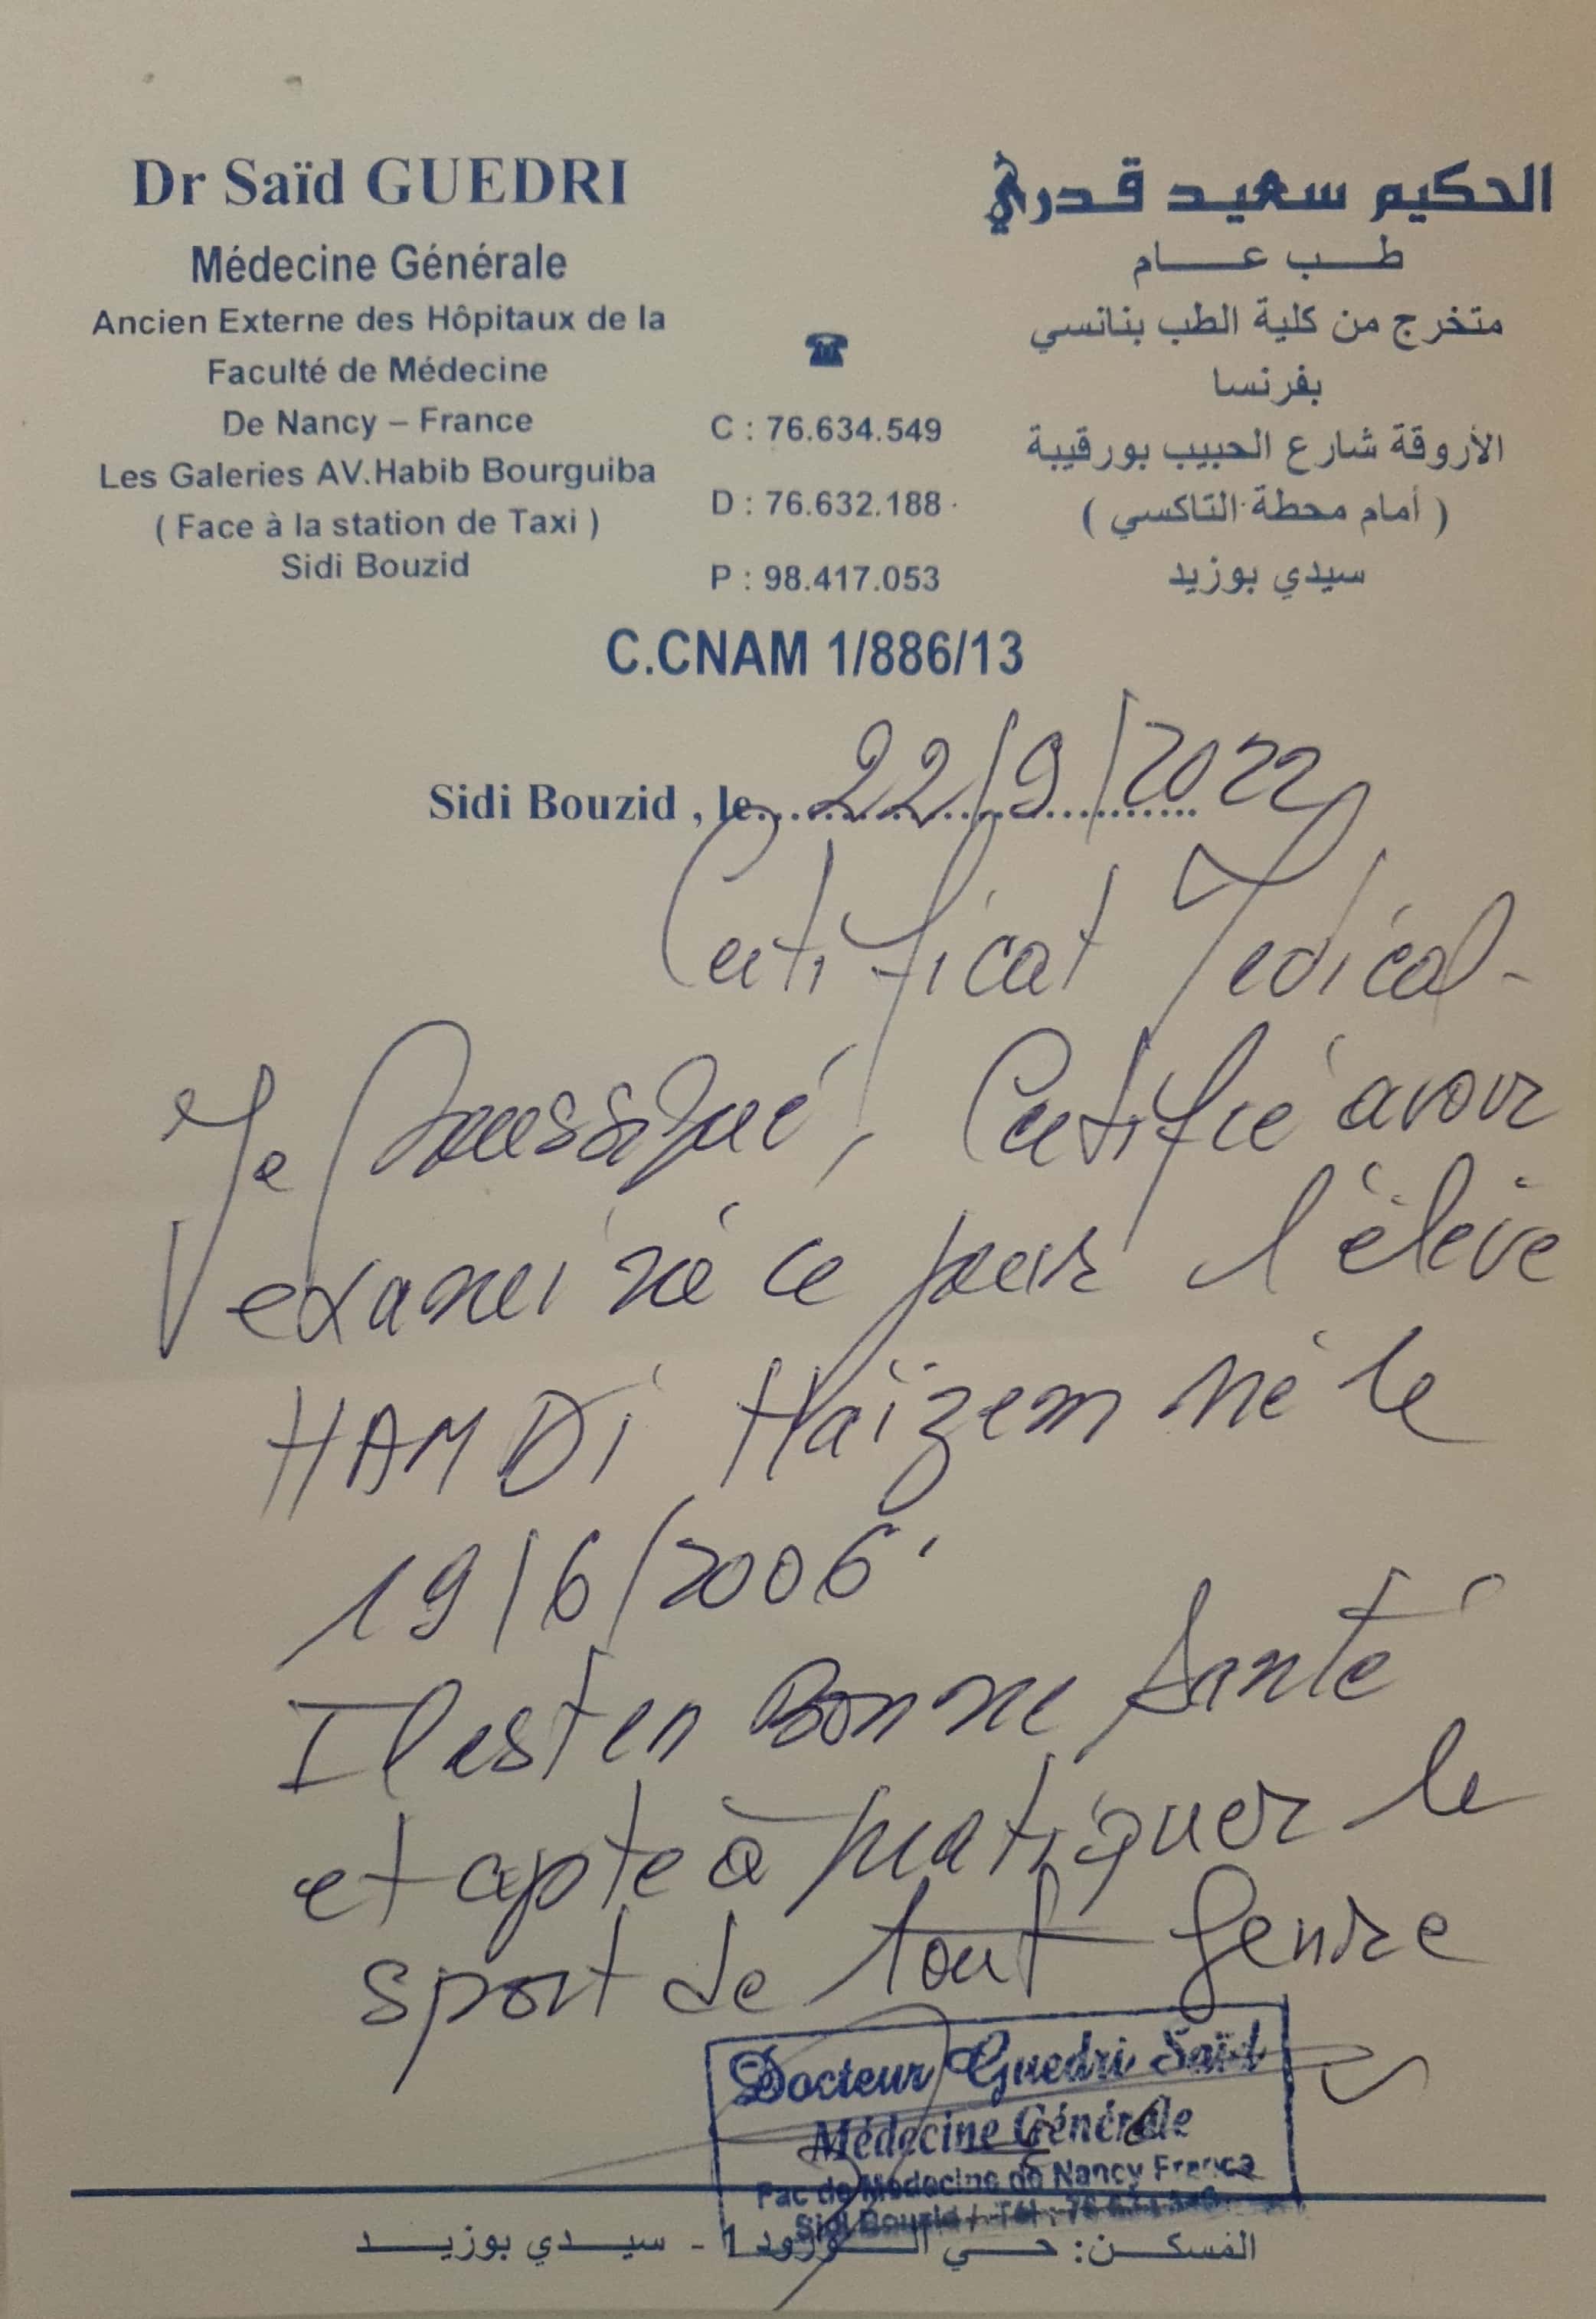 Dr Saïd GUEDRI
Médecine Générale
Ancien Externe des Hôpitaux de la
Faculté de Médecine
De Nancy – France
Les Galeries AV.Habib Bourguiba
( Face à la station de Taxi )
Sidi Bouzid
☎
C : 76.634.549
D : 76.632.188
P : 98.417.053
الحكيم سعيد قدري
طب عام
متخرج من كلية الطب بنانسي
بفرنسا
الأروقة شارع الحبيب بورقيبة
( أمام محطة التاكسي )
سيدي بوزيد
C.CNAM 1/886/13
Sidi Bouzid , le 22/9/2022
Certificat Medical -
Je soussigné, certifie avoir
examiné ce jour l'élève
HAMDi Haïzem né le
19/6/2006
Il est en Bonne Santé
et apte à pratiquer le
sport de tout genre
Docteur Guedri Saïd
Médecine Générale
Fac de Médecine de Nancy France
Sidi Bouzid / Tél :
المسكن: حي الورود 1 - سيدي بوزيد